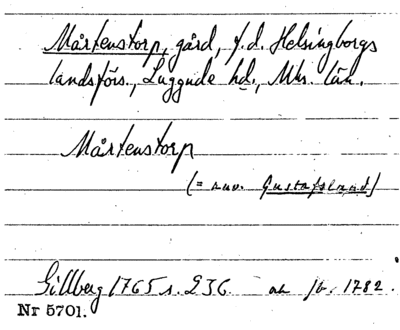 Mårtenstorp, gård, f.d. Helsingborgs
landsförs., Luggude hd., Mhs. län.
Mårtenstorp
(= nuv. Gustafslund)
Gillberg 1765 s. 236. ak fb. 1782.
Nr 5701.